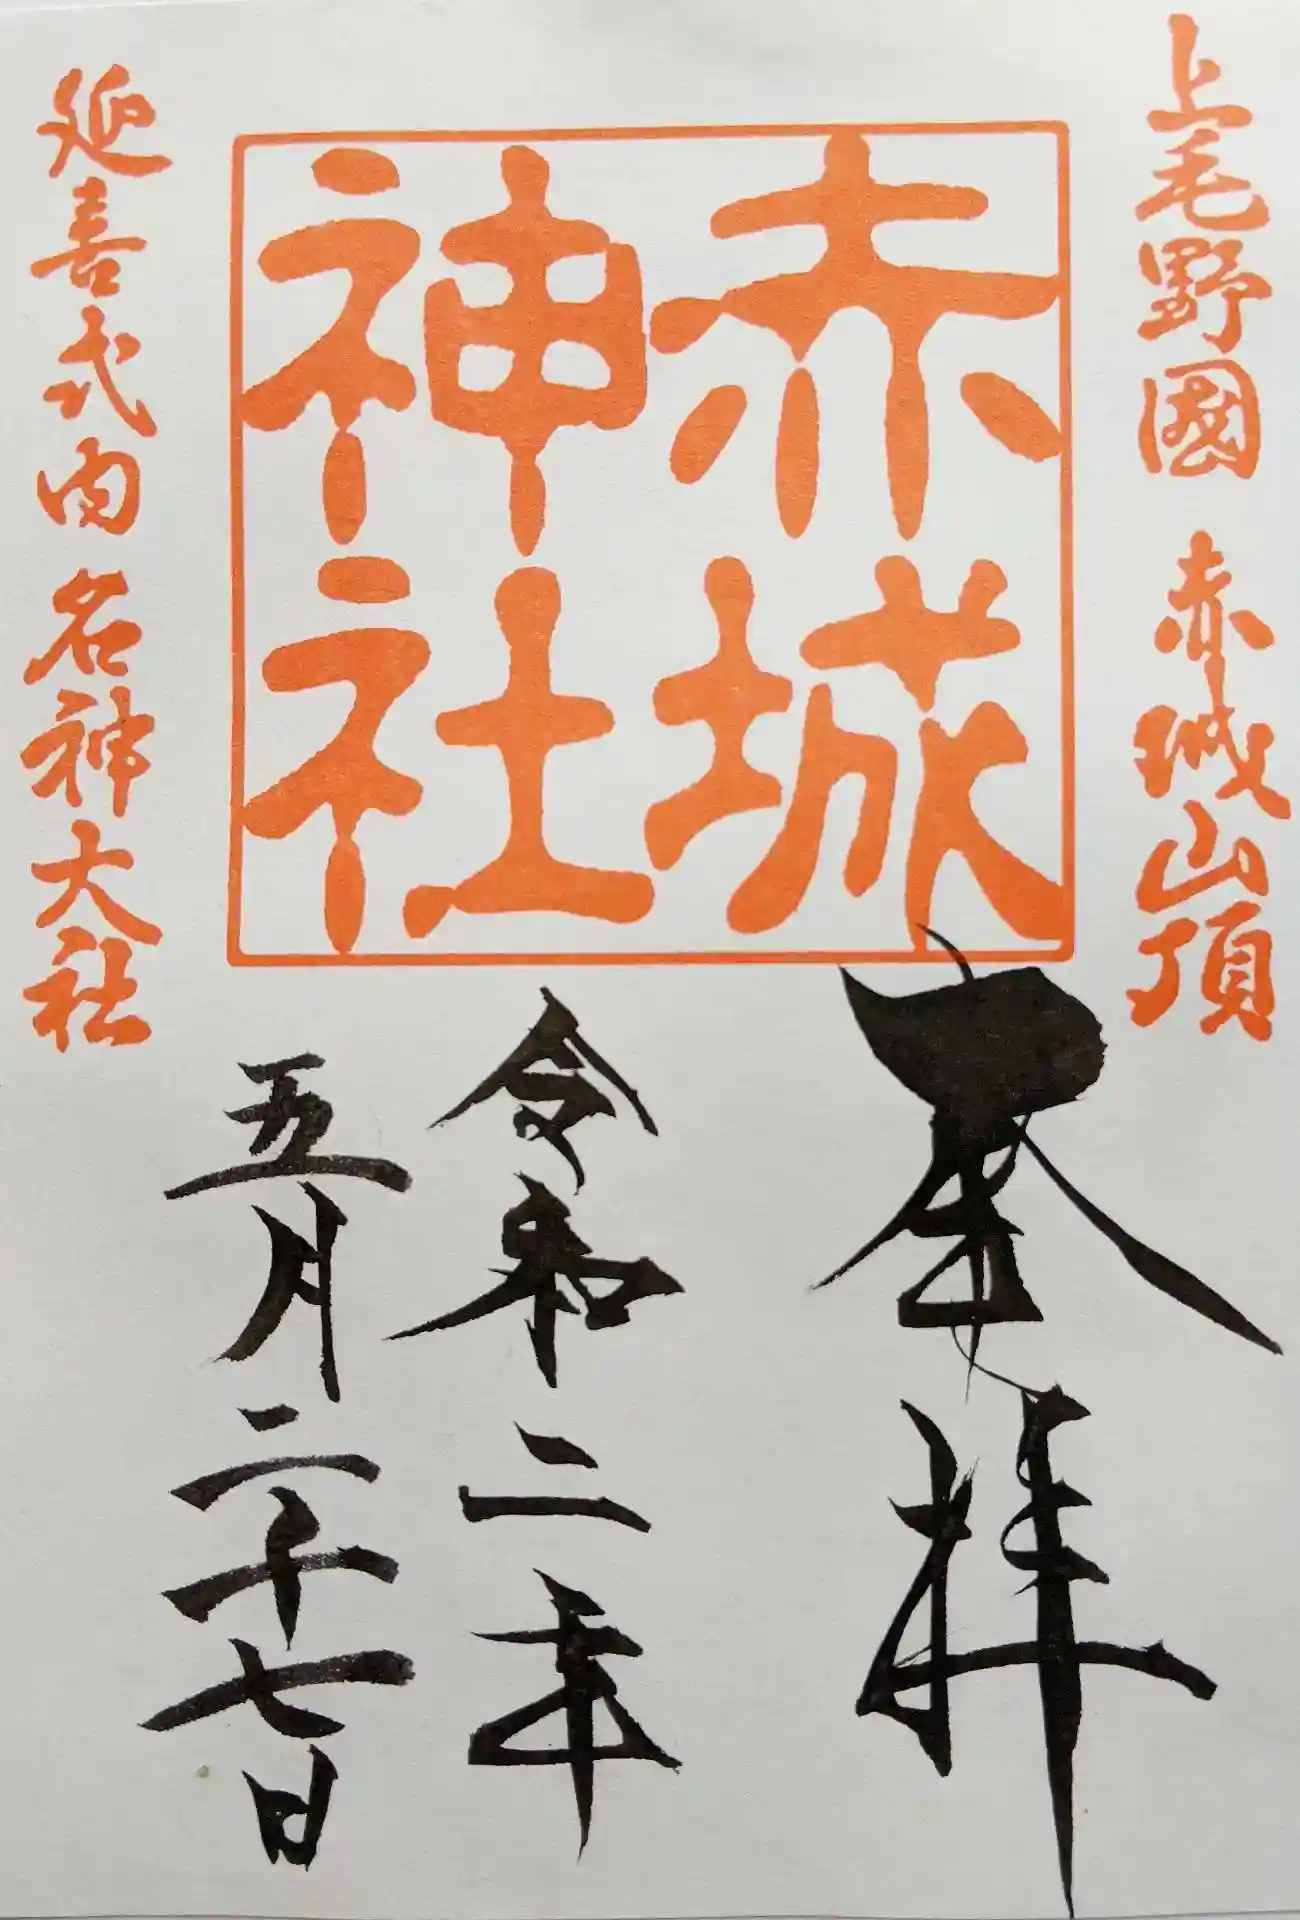 上毛野國 赤城山頂
赤城
神社
延喜式内 名神大社
奉拝
令和二年
五月二十七日